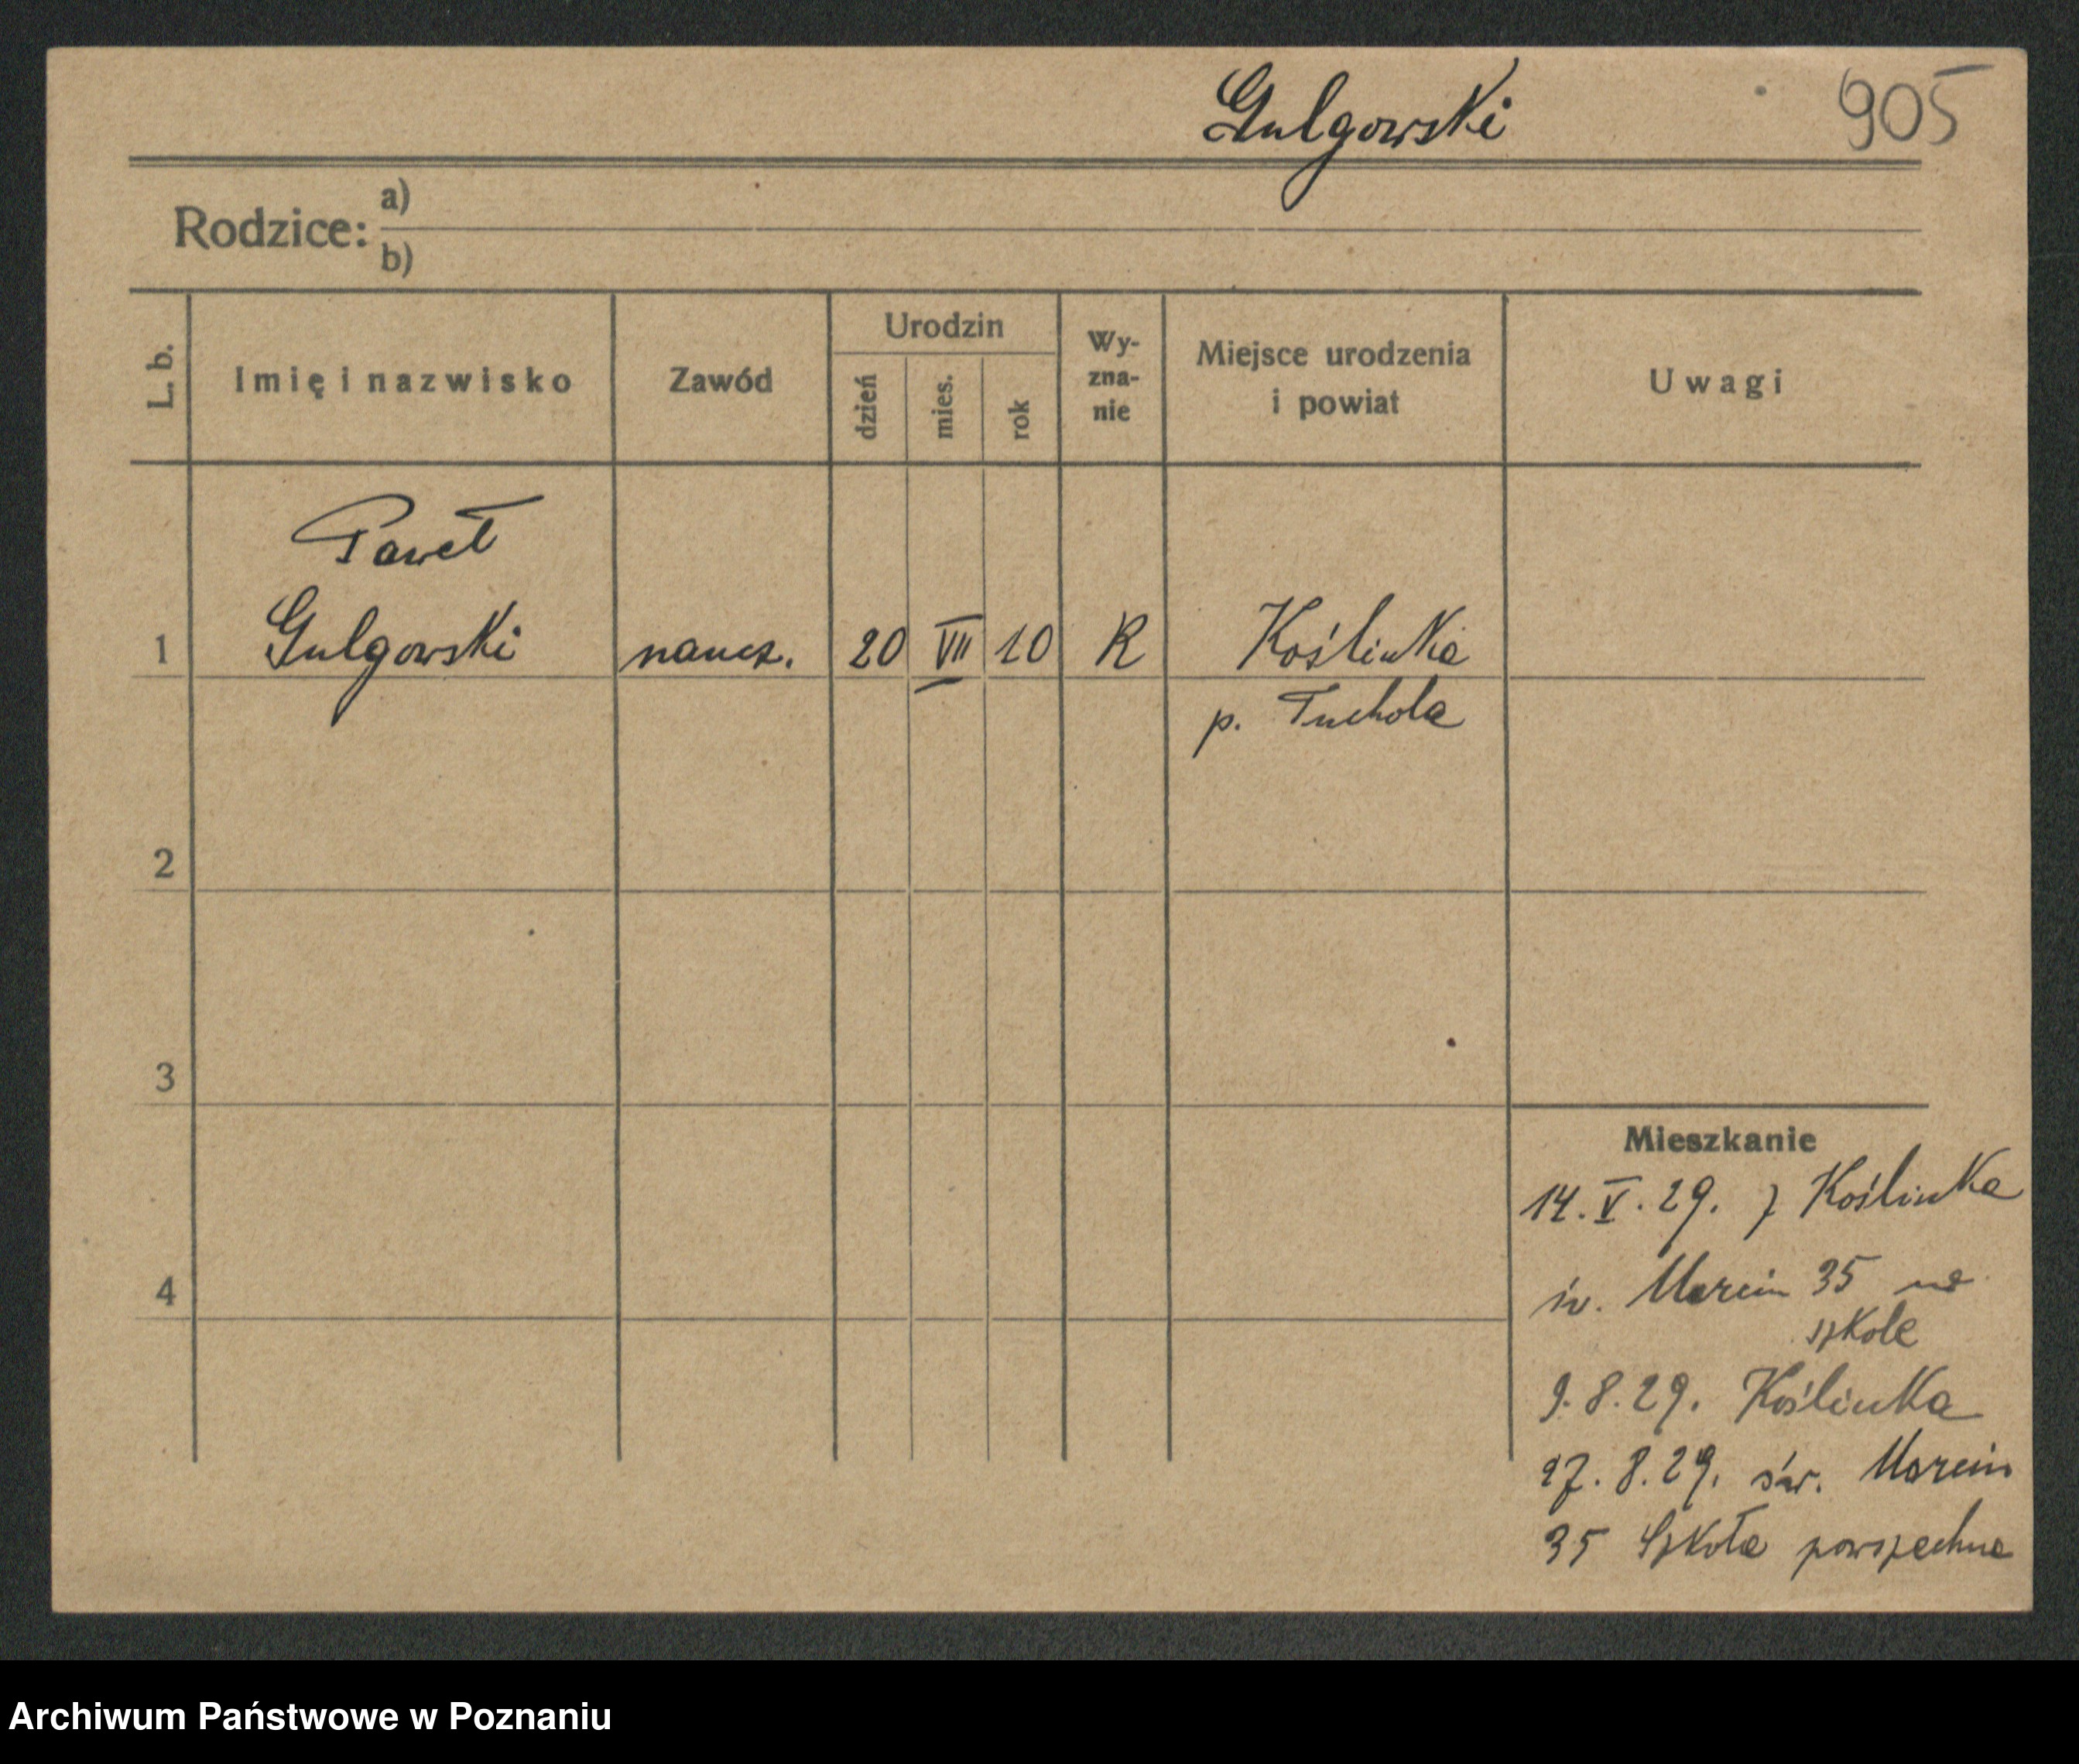 Gulgowski 905
Rodzice: a)
b)
L. b. Imię i nazwisko Zawód Urodzin dzień mies. rok Wy-zna-nie Miejsce urodzenia i powiat Uwagi
Paweł
1 Gulgowski naucz. 20 VII 10 R Koślinka
p. Tuchola
2
3
Mieszkanie
14. V. 29. z Koślinka
4
św. Marcin 35 na
szkole
9. 8. 29. Koślinka
27. 8. 29. św. Marcin
35 Szkoła powszechna
Archiwum Państwowe w Poznaniu